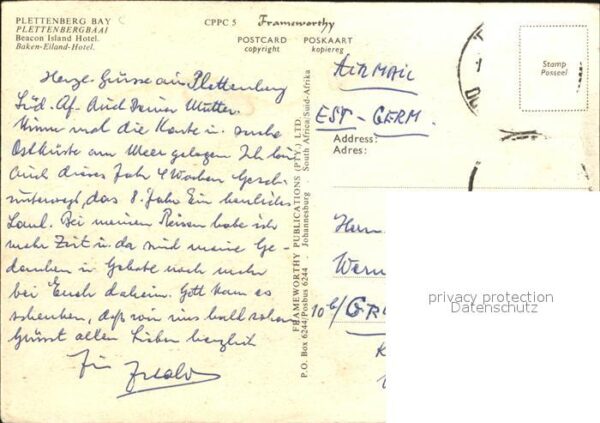 PLETTENBERG BAY
PLETTENBERGBAAI
Beacon Island Hotel.
Baken-Eiland-Hotel.
CPPC 5 Frameworthy
POSTCARD POSKAART
copyright kopiereg
Stamp
Posseel
AIRMAIL
EST-GERM.
Address:
Adres:
Herzl. Grüsse aus Plettenberg
Süd-Af. Auch Deiner Mutter.
Nimm mal die Karte u. suche
Ostküste am Meer gelegen. Ich bin
auch dieses Jahr 4 Wochen
unterwegs, das 8. Jahr. Ein herrliches
Land. Bei meinen Reisen habe ich
mehr Zeit u. da sind meine Ge-
danken u. Gebete noch mehr
bei Euch daheim. Gott kann es
schenken, daß wir uns bald sehen
Grüsst allen Lieben herzlich
FRAMEWORTHY PUBLICATIONS (PTY.) LTD.
P.O. Box 6244/Posbus 6244 . Johannesburg . South Africa/Suid-Afrika
Herrn
10
privacy protection
Datenschutz